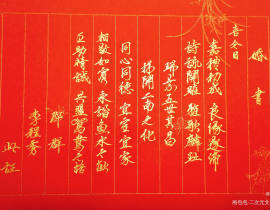 婚書
喜今日
嘉禮初成 良缘遂締
詩詠關雎 雅歌麟趾
瑞葉五世其昌
祥開二南之化
同心同德 宜室宜家
相敬如賓 永諧魚水之歡
互助精誠 共盟鴛鴦之誓
邵群
李程秀
此証